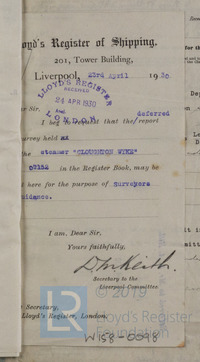 loyd's Register of Shipping.
201, Tower Building,
Liverpool, 23rd April 1930
LLOYD'S REGISTER
RECEIVED
24 APR 1930
LONDON
ear Sir,
deferred
I beg to request that the report
urvey held as
he steamer "CLOUGHTON WYKE"
in the Register Book, may be
t here for the purpose of Surveyors
uidance.
I am, Dear Sir,
Yours faithfully,
Secretary to the
Liverpool Committee.
e Secretary,
Lloyd's Register, London.
© 2019
LR
Lloyd's Register
Foundation
W158-0098